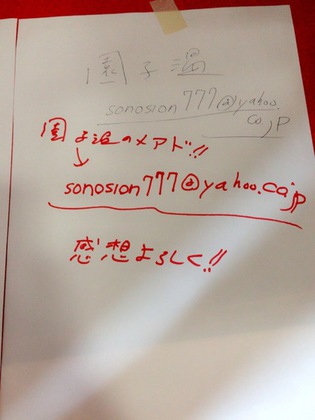 園子温
sonosion777@yahoo.
co.jp
園子温のメアド!!
↓
sonosion777@yahoo.co.jp
感想よろしく!!